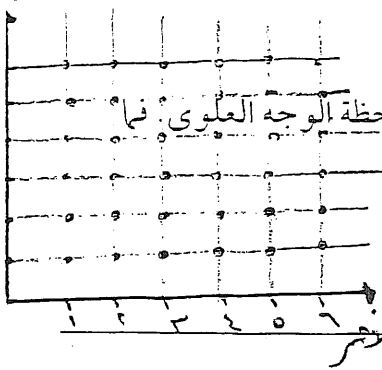 حظة الوجه العلوي. فما
١ ٢ ٣ ٤ ٥ ٦